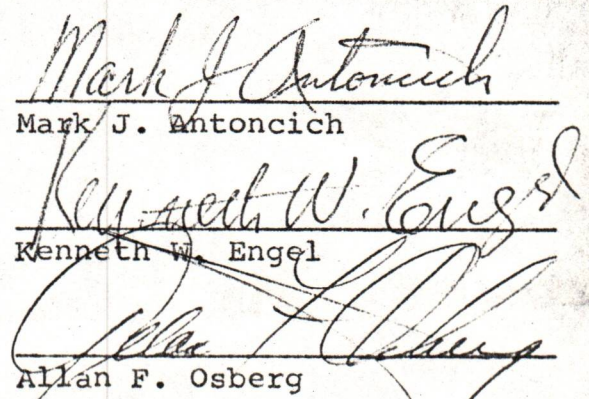 Mark J Antoncich
Mark J. Antoncich
Kenneth W. Engel
Kenneth W. Engel
Allan F Osberg
Allan F. Osberg